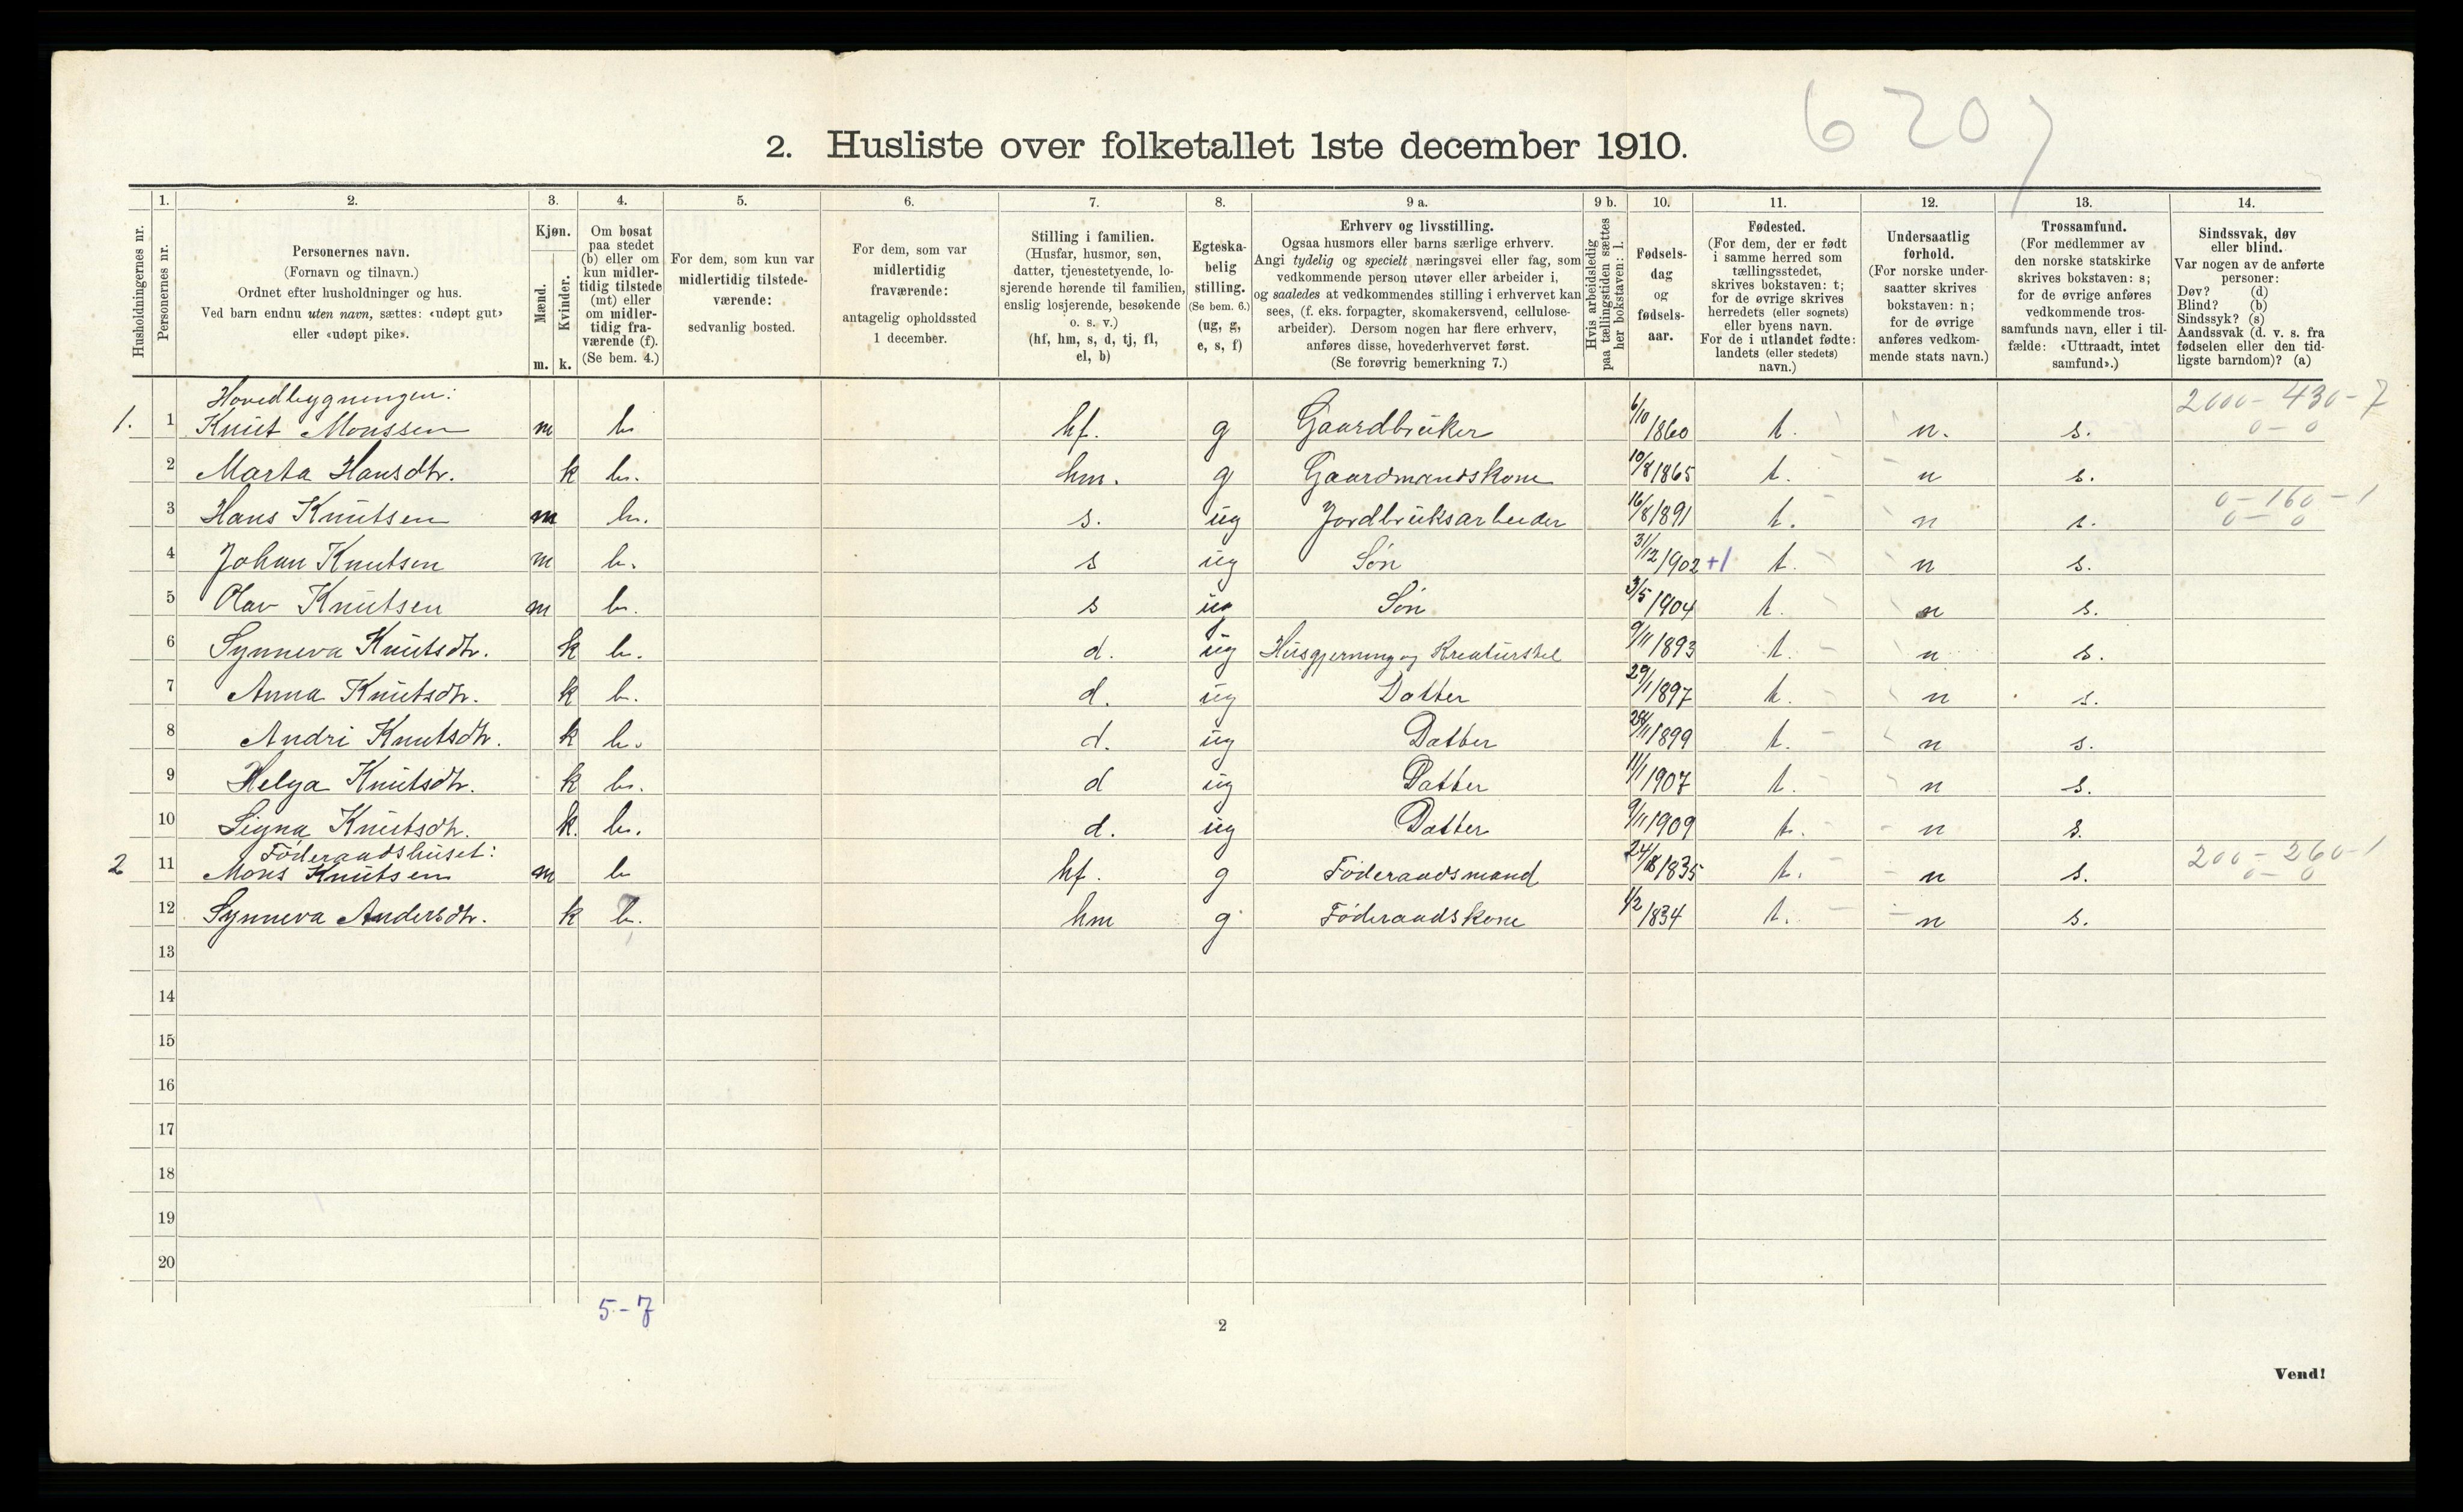 6 20 7
2. Husliste over folketallet 1ste december 1910.
Husholdningernes nr.
1. Personernes nr.
2. Personernes navn.
(Fornavn og tilnavn.)
Ordnet efter husholdninger og hus.
Ved barn endnu uten navn, sættes: «udøpt gut»
eller «udøpt pike».
3. Kjøn.
Mænd. m.
Kvinder. k.
4. Om bosat
paa stedet
(b) eller om
kun midler-
tidig tilstede
(mt) eller
om midler-
tidig fra-
værende (f).
(Se bem. 4.)
5. For dem, som kun var
midlertidig tilstede-
værende:
sedvanlig bosted.
6. For dem, som var
midlertidig
fraværende:
antagelig opholdssted
1 december.
7. Stilling i familien.
(Husfar, husmor, søn,
datter, tjenestetyende, lo-
sjerende hørende til familien,
enslig losjerende, besøkende
o. s. v.)
(hf, hm, s, d, tj, fl,
el, b)
8. Egteska-
belig
stilling.
(Se bem. 6.)
(ug, g,
e, s, f)
9 a. Erhverv og livsstilling.
Ogsaa husmors eller barns særlige erhverv.
Angi tydelig og specielt næringsvei eller fag, som
vedkommende person utøver eller arbeider i,
og saaledes at vedkommendes stilling i erhvervet kan
sees, (f. eks. forpagter, skomakersvend, cellulose-
arbeider). Dersom nogen har flere erhverv,
anføres disse, hovederhvervet først.
(Se forøvrig bemerkning 7.)
9 b. Hvis arbeidsledig
paa tællingstiden sættes
her bokstaven: l.
10. Fødsels-
dag
og
fødsels-
aar.
11. Fødested.
(For dem, der er født
i samme herred som
tællingsstedet,
skrives bokstaven: t;
for de øvrige skrives
herredets (eller sognets)
eller byens navn.
For de i utlandet fødte:
landets (eller stedets)
navn.)
12. Undersaatlig
forhold.
(For norske under-
saatter skrives
bokstaven: n;
for de øvrige
anføres vedkom-
mende stats navn.)
13. Trossamfund.
(For medlemmer av
den norske statskirke
skrives bokstaven: s;
for de øvrige anføres
vedkommende tros-
samfunds navn, eller i til-
fælde: «Uttraadt, intet
samfund».)
14. Sindssvak, døv
eller blind.
Var nogen av de anførte
personer:
Døv? (d)
Blind? (b)
Sindssyk? (s)
Aandssvak (d. v. s. fra
fødselen eller den tid-
ligste barndom)? (a)
Hovedbygningen: 2000 - 430 - 7
1. 1 Knut Monssen m b hf. g Gaardbruker 6/10 1860 t. n. s. 0 - 0
2 Marta Hansdtr. k b. hm. g Gaardmandskone 10/8 1865 t. n s.
3 Hans Knutsen m b. s. ug Jordbruksarbeider 16/8 1891 t. n s. 0 - 160 - 1 0 - 0
4 Johan Knutsen m b. s ug Søn 31/12 1902 +1 t. n s.
5 Olav Knutsen m b. s ug Søn 3/5 1904 t. n s.
6 Synneva Knutsdtr. k b. d. ug Husgjerning og Kreaturstel 9/11 1893 t. n s.
7 Anna Knutsdtr. k b. d. ug Datter 29/1 1897 t. n s.
8 Andri Knutsdtr. k b. d. ug Datter 1899 t. n s.
9 Helga Knutsdtr. k b. d ug Datter 11/1 1907 t. n s.
10 Signa Knutsdtr. k. b. d. ug Datter 9/11 1909 t. n s.
Föderaadshuset: 200 - 260 - 1
2 11 Mons Knutsen m b hf. g Föderaadsmand 24/8 1835 t. n s. 0 - 0
12 Synneva Andersdtr. k b. hm g Föderaadskone 1/2 1834 t. n s.
13
14
15
16
17
18
19
20
5 - 7
2
Vend!